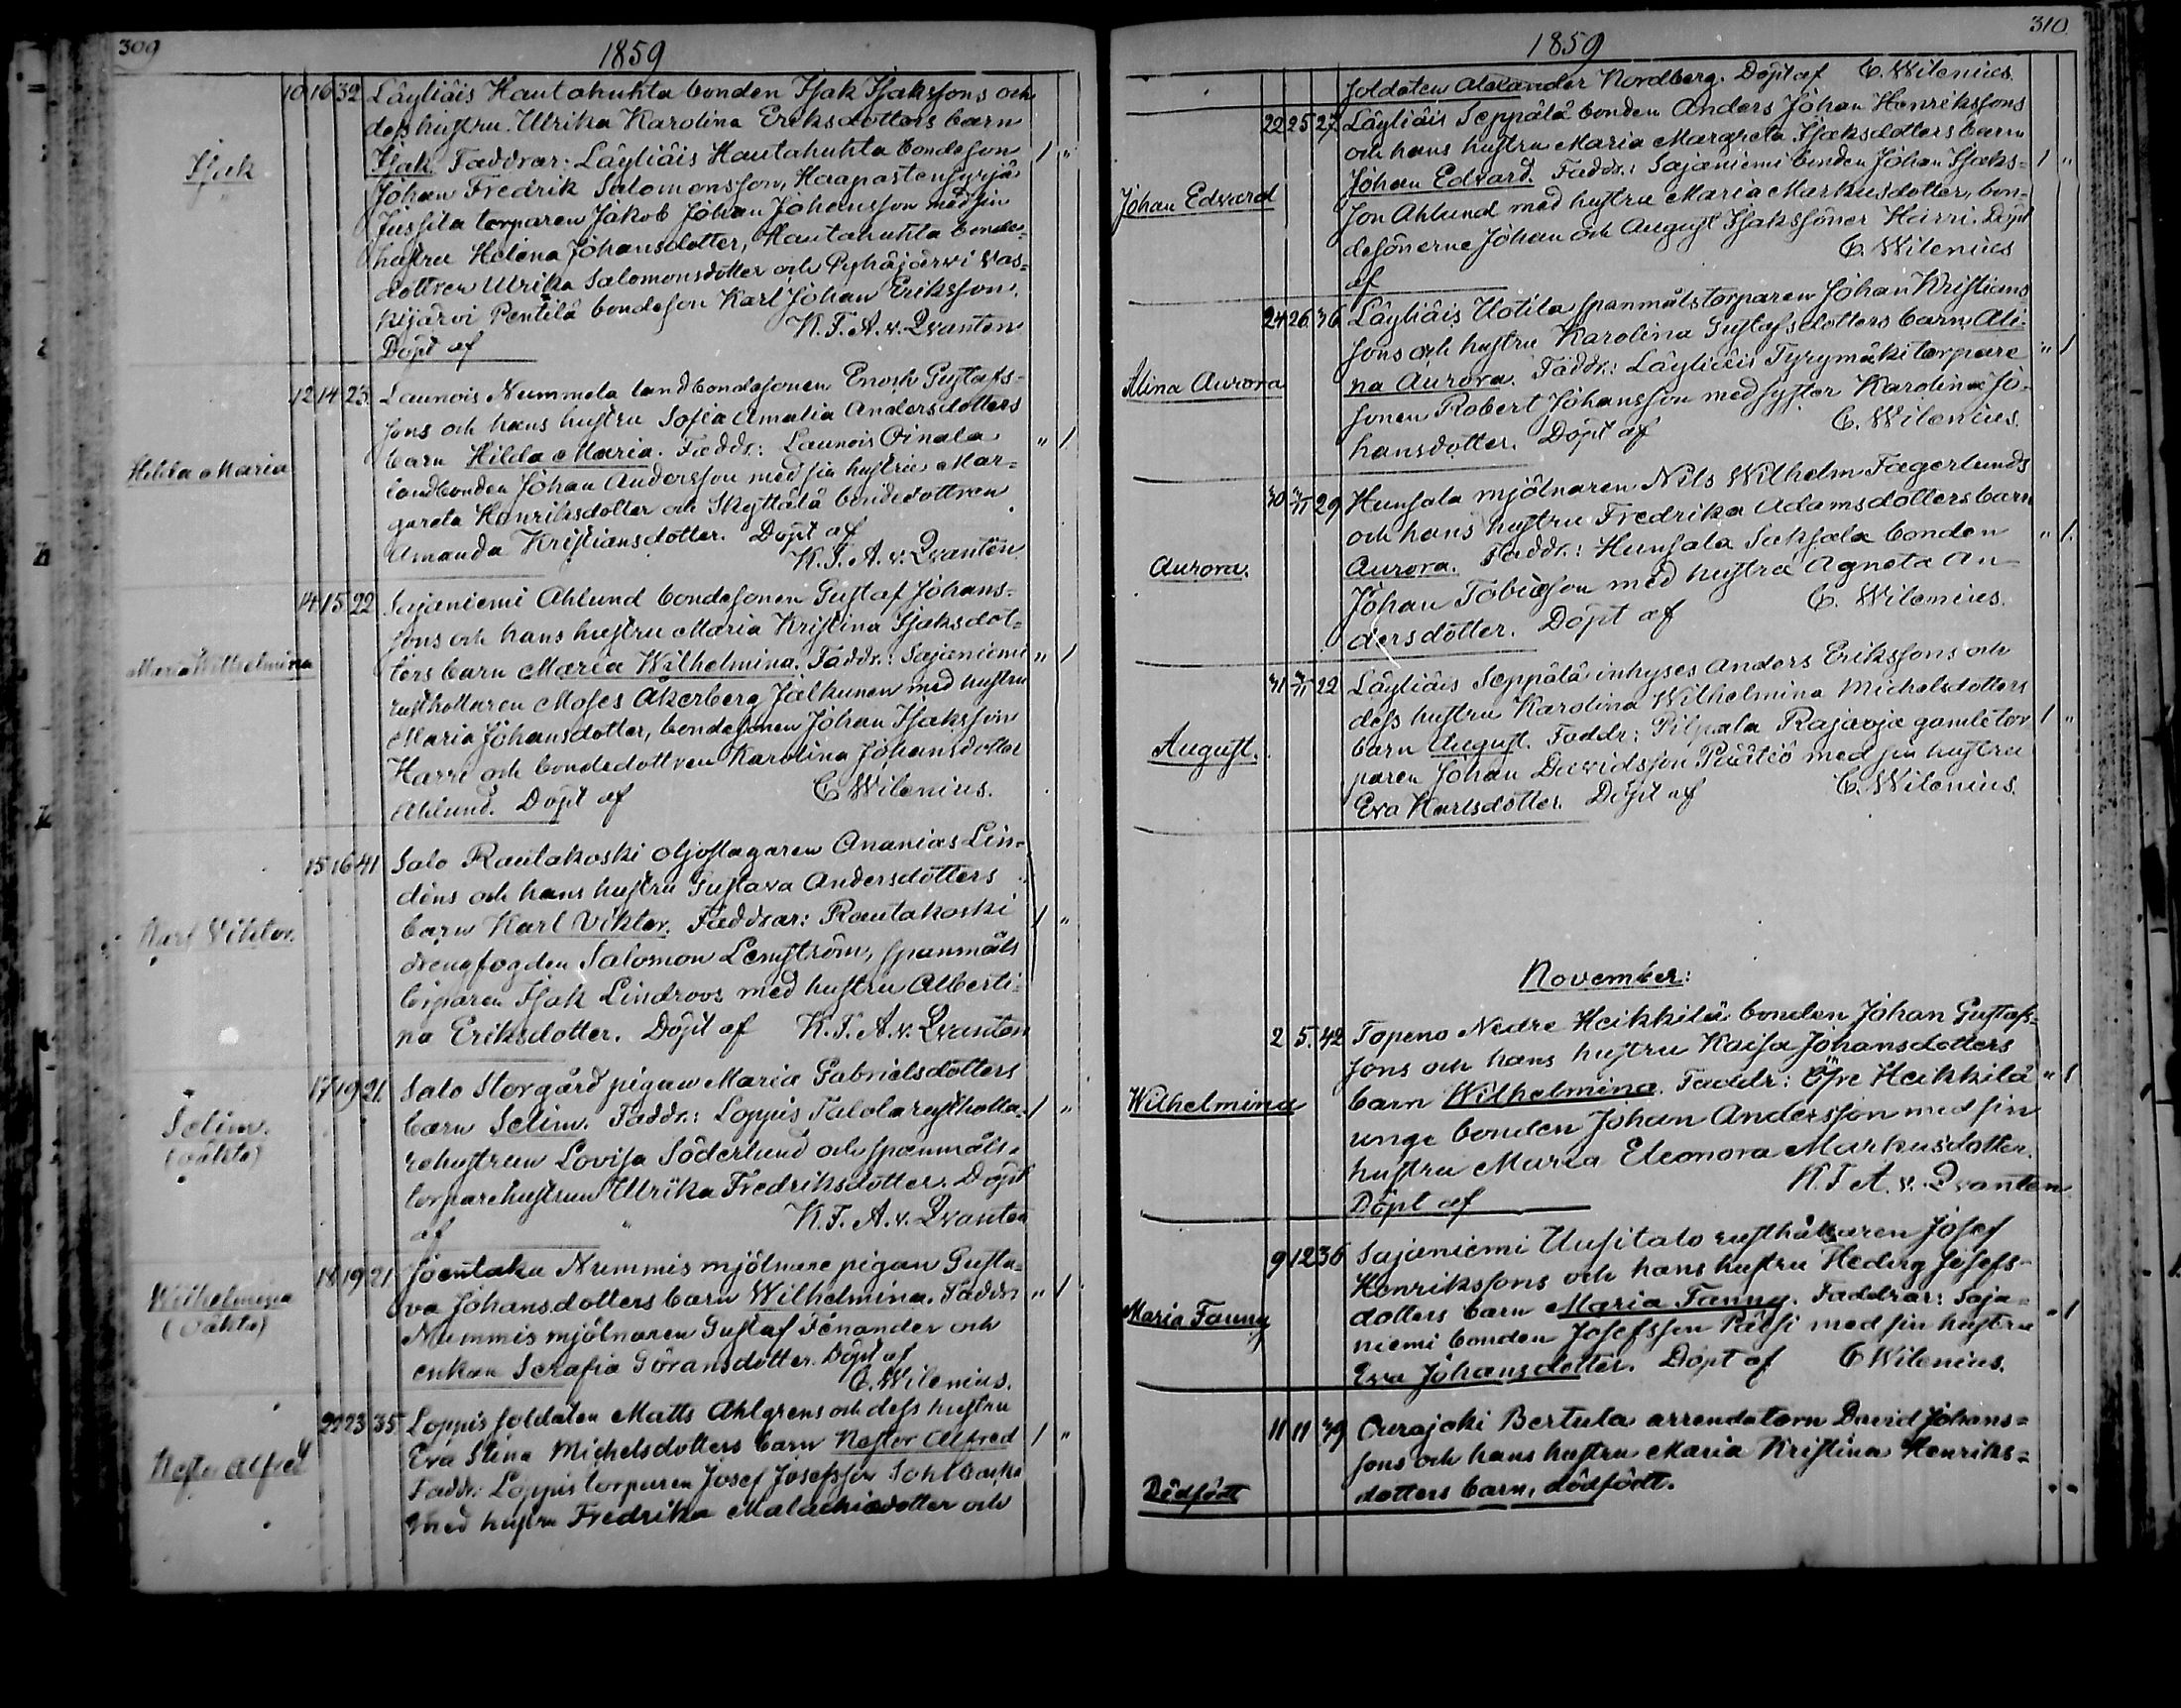 309
1859
Isak
10 16 32 Läyliäis Hautahuhta bonden Isak Isakssons och
dess hustru Ulrika Karolina Eriksdotters barn
Isak. Faddrar: Läyliäis Hautahuhta bondeson 1 "
Johan Fredrik Salomonsson, Haapastensyrjä
Jussila torparen Jakob Johan Johansson med sin
hustru Helena Johansdotter, Hautahuhta bonde-
dottren Ulrika Salomonsdotter och Pyhäjärvi Vas-
kijärvi Pentilä bondeson Karl Johan Eriksson.
Döpt af K. F. A. v. Qvanten
Hilda Maria
12 14 23 Launois Nummela landbondesonen Enosh Gustafs-
sons och hans hustru Sofia Amalia Andersdotters
barn Hilda Maria. Faddr.: Launois Oinala " 1
landbonden Johan Andersson med sin hustru Mar-
gareta Henriksdotter och Skyttälä bondedottren
Amanda Kristiansdotter. Döpt af
K. F. A. v. Qvanten
Maria Wilhelmina
14 15 22 Sajaniemi Ahlund bondesonen Gustaf Johans-
sons och hans hustru Maria Kristina Isaksdot-
ters barn Maria Wilhelmina. Faddr.: Sajaniemi " 1
rusthollaren Moses Åkerberg Jalkunen med hustru
Maria Johansdotter, bondesonen Johan Isaksson
Harri och bondedottren Karolina Johansdotter
Ahlund. Döpt af C Wilenius.
Karl Viktor.
15 16 41 Salo Rautakoski oljeslagaren Ananias Lin-
déns och hans hustru Gustava Andersdotters
barn Karl Viktor. Faddrar: Rautakoski 1 "
drengfogden Salomon Lengström, spanmåls
torparen Isak Lindroos med hustru Alberti-
na Eriksdotter. Döpt af K. F. A. v. Qvanten
Selim.
(oäkta)
17 19 21. Salo Storgård pigan Maria Gabrielsdotters
barn Selim. Faddr.: Loppis Talola rustholla- 1 "
rehustrun Lovisa Söderlund och spanmåls-
torparehustrun Ulrika Fredriksdotter. Döpt
af K. F. A. v. Qvanten
Wilhelmina
(oäkta)
18 19 21. Joentaka Nummis mjölnare pigan Gusta-
va Johansdotters barn Wilhelmina. Faddr. " 1
Nummis mjölnaren Gustaf Fenander och
enkan Serafia Göransdotter. Döpt af
C. Wilenius.
Nestor Alfred
22 23 35 Loppis soldaten Matts Ahlgrens och dess hustru
Eva Stina Michelsdotters barn Nestor Alfred 1 "
Faddr.: Loppis torparen Josef Josefsson Sohlbacka
med hustru Fredrika Malachiadotter och
310
1859
soldaten Alexander Nordberg. Döpt af C. Wilenius.
Johan Edvard
22 25 27 Läyliäis Seppälä bonden Anders Johan Henrikssons
och hans hustru Maria Margreta Isaksdotters barn
Johan Edvard. Faddr.: Sajaniemi bonden Johan Isaks- 1 "
son Ahlund med hustru Maria Markusdotter, bon-
desönerne Johan och August Isakssöner Harri. Döpt
af C. Wilenius
Alina Aurora
24 26 36 Läyliäis Uotila spanmålstorparen Johan Kristians
sons och hustru Karolina Gustafsdotters barn Ali-
na Aurora. Faddr.: Läyliäis Tyrymäki torpare " 1
sonen Robert Johansson med syster Karolina Jo-
hansdotter. Döpt af C. Wilenius.
Aurora.
30 2/11 29 Hunsala mjölnaren Nils Wilhelm Fagerlunds
och hans hustru Fredrika Adamsdotters barn
Aurora. Faddr.: Hunsala Saksala bonden " 1.
Johan Tobiasson med hustru Agneta An-
dersdotter. Döpt af C. Wilenius.
August.
31 2/11 22 Läyliäis Seppälä inhyses Anders Erikssons och
dess hustru Karolina Wilhelmina Michelsdotters
barn August. Faddr: Pilpala Rajaoja gamle tor 1 "
paren Johan Davidsson Päistiö med sin hustru
Eva Karlsdotter. Döpt af C. Wilenius.
November:
Wilhelmina
2 5. 42 Topeno Nedre Heikkilä bonden Johan Gustafs-
sons och hans hustru Kaisa Johansdotters
barn Wilhelmina. Faddr: Öfre Heikkilä " 1
unge bonden Johan Andersson med sin
hustru Maria Eleonora Markusdotter.
Döpt af K. F. A. v. Qvanten
Maria Fanny
9 12 36 Sajaniemi Uusitalo rusthållaren Josef
Henrikssons och hans hustru Hedvig Josefs-
dotters barn Maria Fanny. Faddrar: Saja- " 1
niemi bonden Josefsson Pätsi med sin hustru
Eva Johansdotter. Döpt af C Wilenius.
Dödfödt
11 11 39 Ourajoki Bertula arrendatorn David Johans-
sons och hans hustru Maria Kristina Henriks-
dotters barn, dödfödt. " "